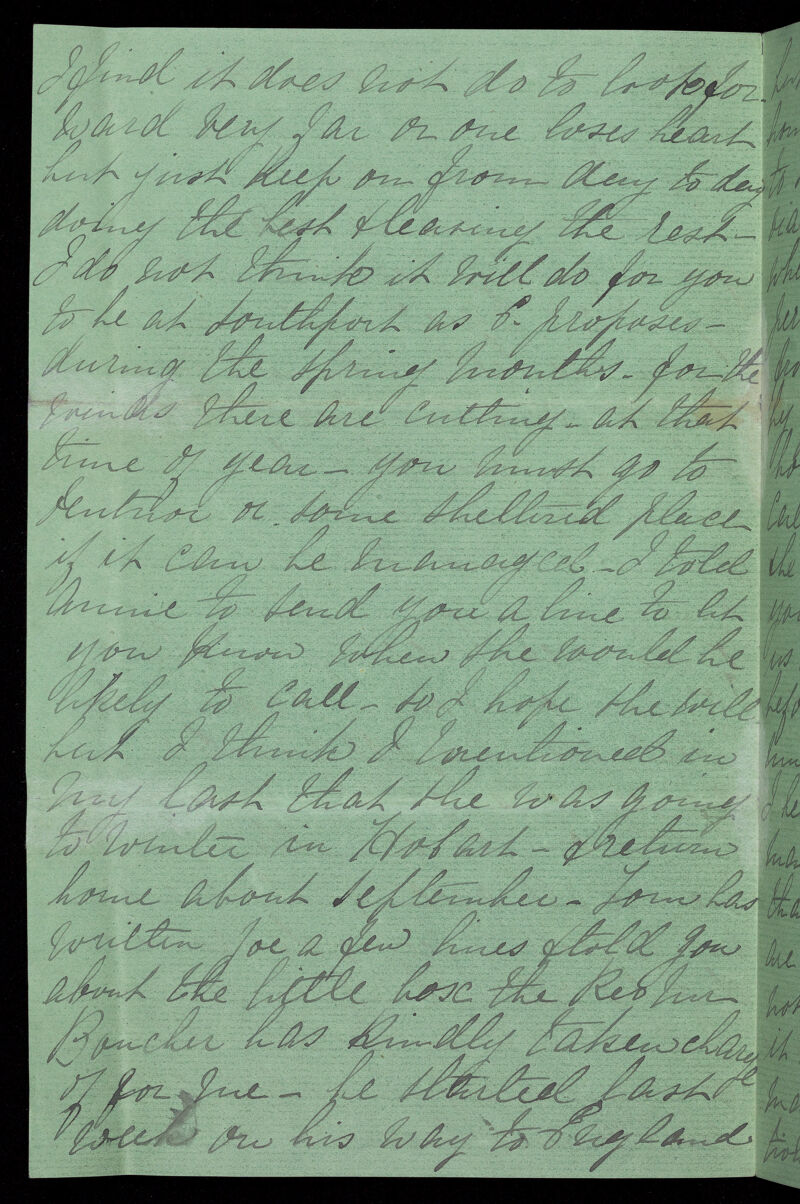 I find it does not do to look for-
ward very far or one loses heart
but just keep on from day to day
doing the best & leaving the rest -
I do not think it will do for you
to be at Southport as E. proposes -
during the spring months - for the
winds there are cutting - at that
time of year - you must go to
Ventnor or some sheltered place
if it can be managed - I told
Annie to send you a line to let
you know when she would be
likely to call - so I hope she will
but I think I mentioned in
my last that she was going
to winter in Hobart - & return
home about September - Tom has
written Joe a few lines & told you
about the little box the Rev Mr
Boucher has kindly taken charge
of for me - he started last
week on his way to England